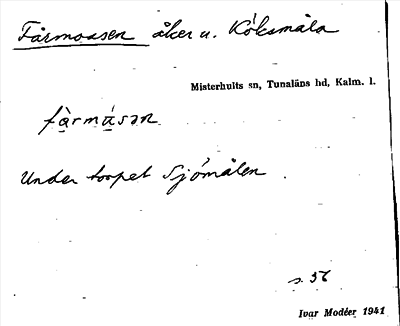 Fårmossen åker u. Köksmåla
Misterhults sn, Tunaläns hd, Kalm. l.
fàrmásən
Under torpet Sjömålen.
s. 36
Ivar Modéer 1941